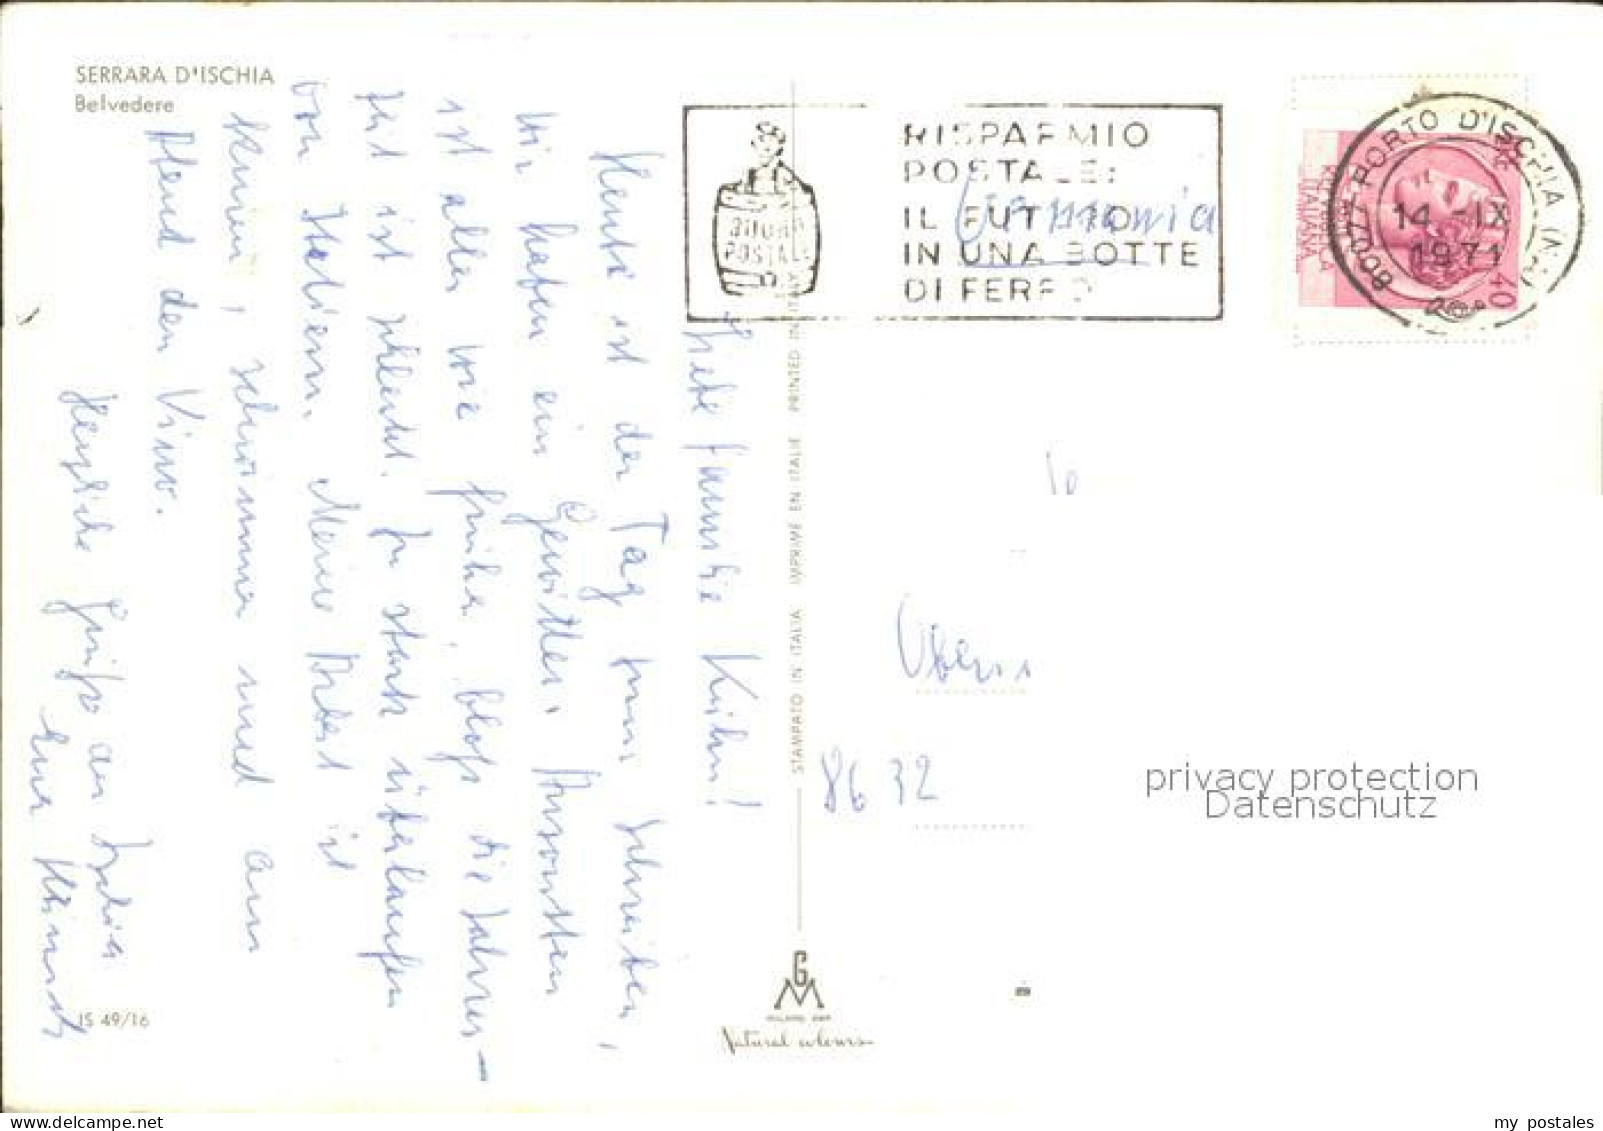 SERRARA D'ISCHIA
Belvedere
Liebe Familie Kühn!
Heute ist der Tag zum schreiben,
wir haben ein Gewitter. Ansonsten
ist alles wie früher, bloß die Jahres-
zeit ist schlecht. Zu stark überlaufen
von Italienern. Meine Arbeit ist
, schwimmen und am
Abend den Vino.
Herzliche Grüße an
Eure
IS 49/16
STAMPATO IN ITALIA IMPRIMÉ EN ITALIE PRINTED IN ITALY
GM
Natural colours
BUONO
POSTALE
RISPARMIO
POSTALE:
IL FUTURO
IN UNA BOTTE
DI FERRO
Germania
80077 PORTO D'ISCHIA (NA)
14-IX
1971
40
8632
privacy protection
Datenschutz
my postales
www.delcampe.net